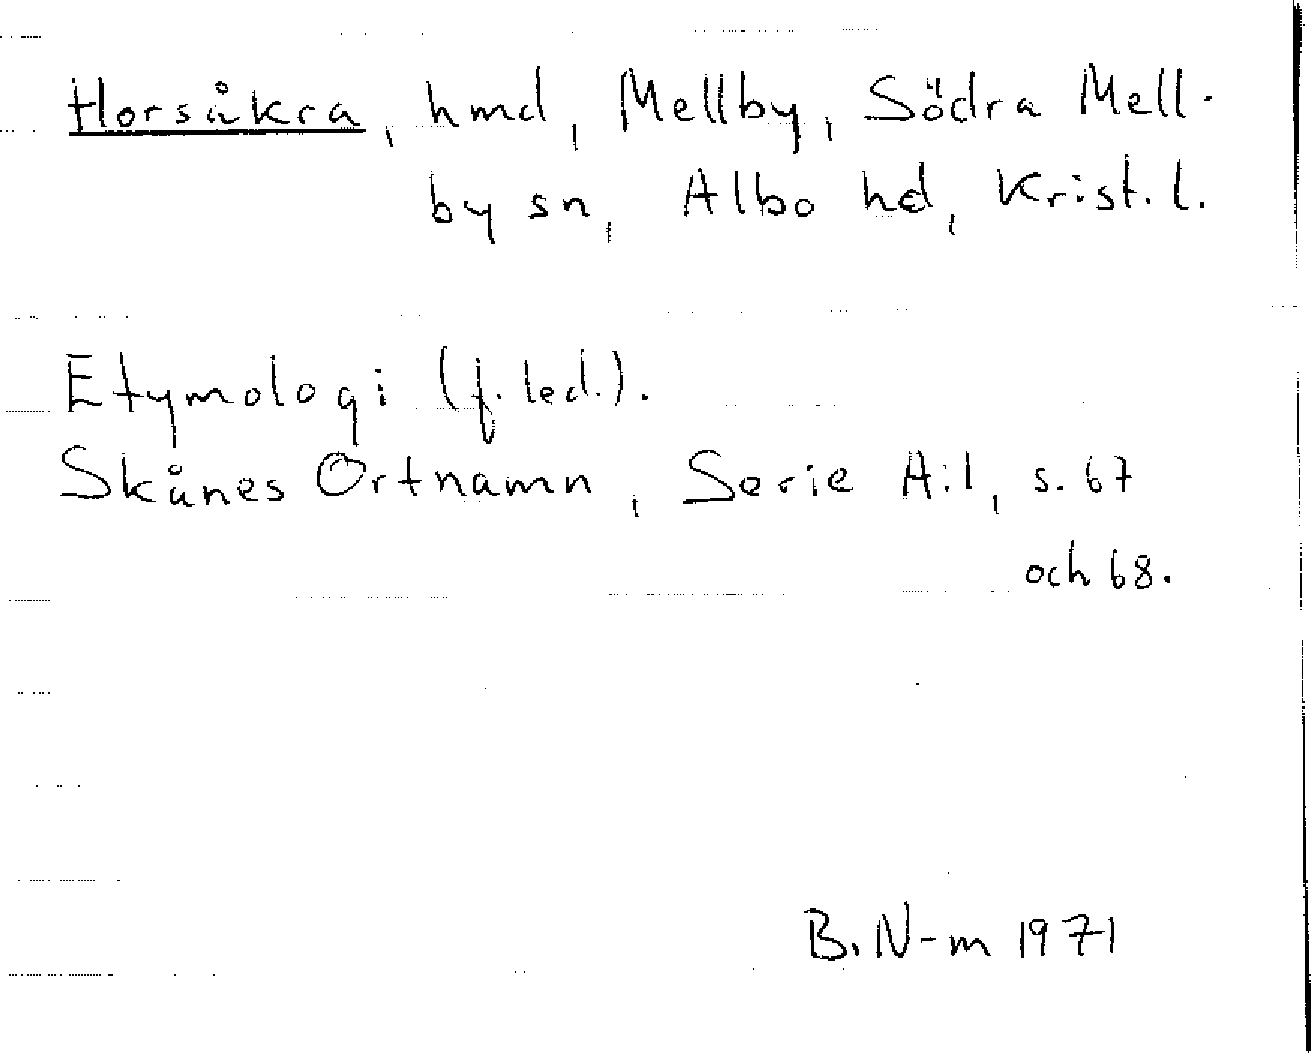 Horsåkra, hmd, Mellby, Södra Mell-
by sn, Albo hd, Krist. l.
Etymologi (f. led.).
Skånes Ortnamn, Serie A:1, s. 67
och 68.
B. N-m 1971